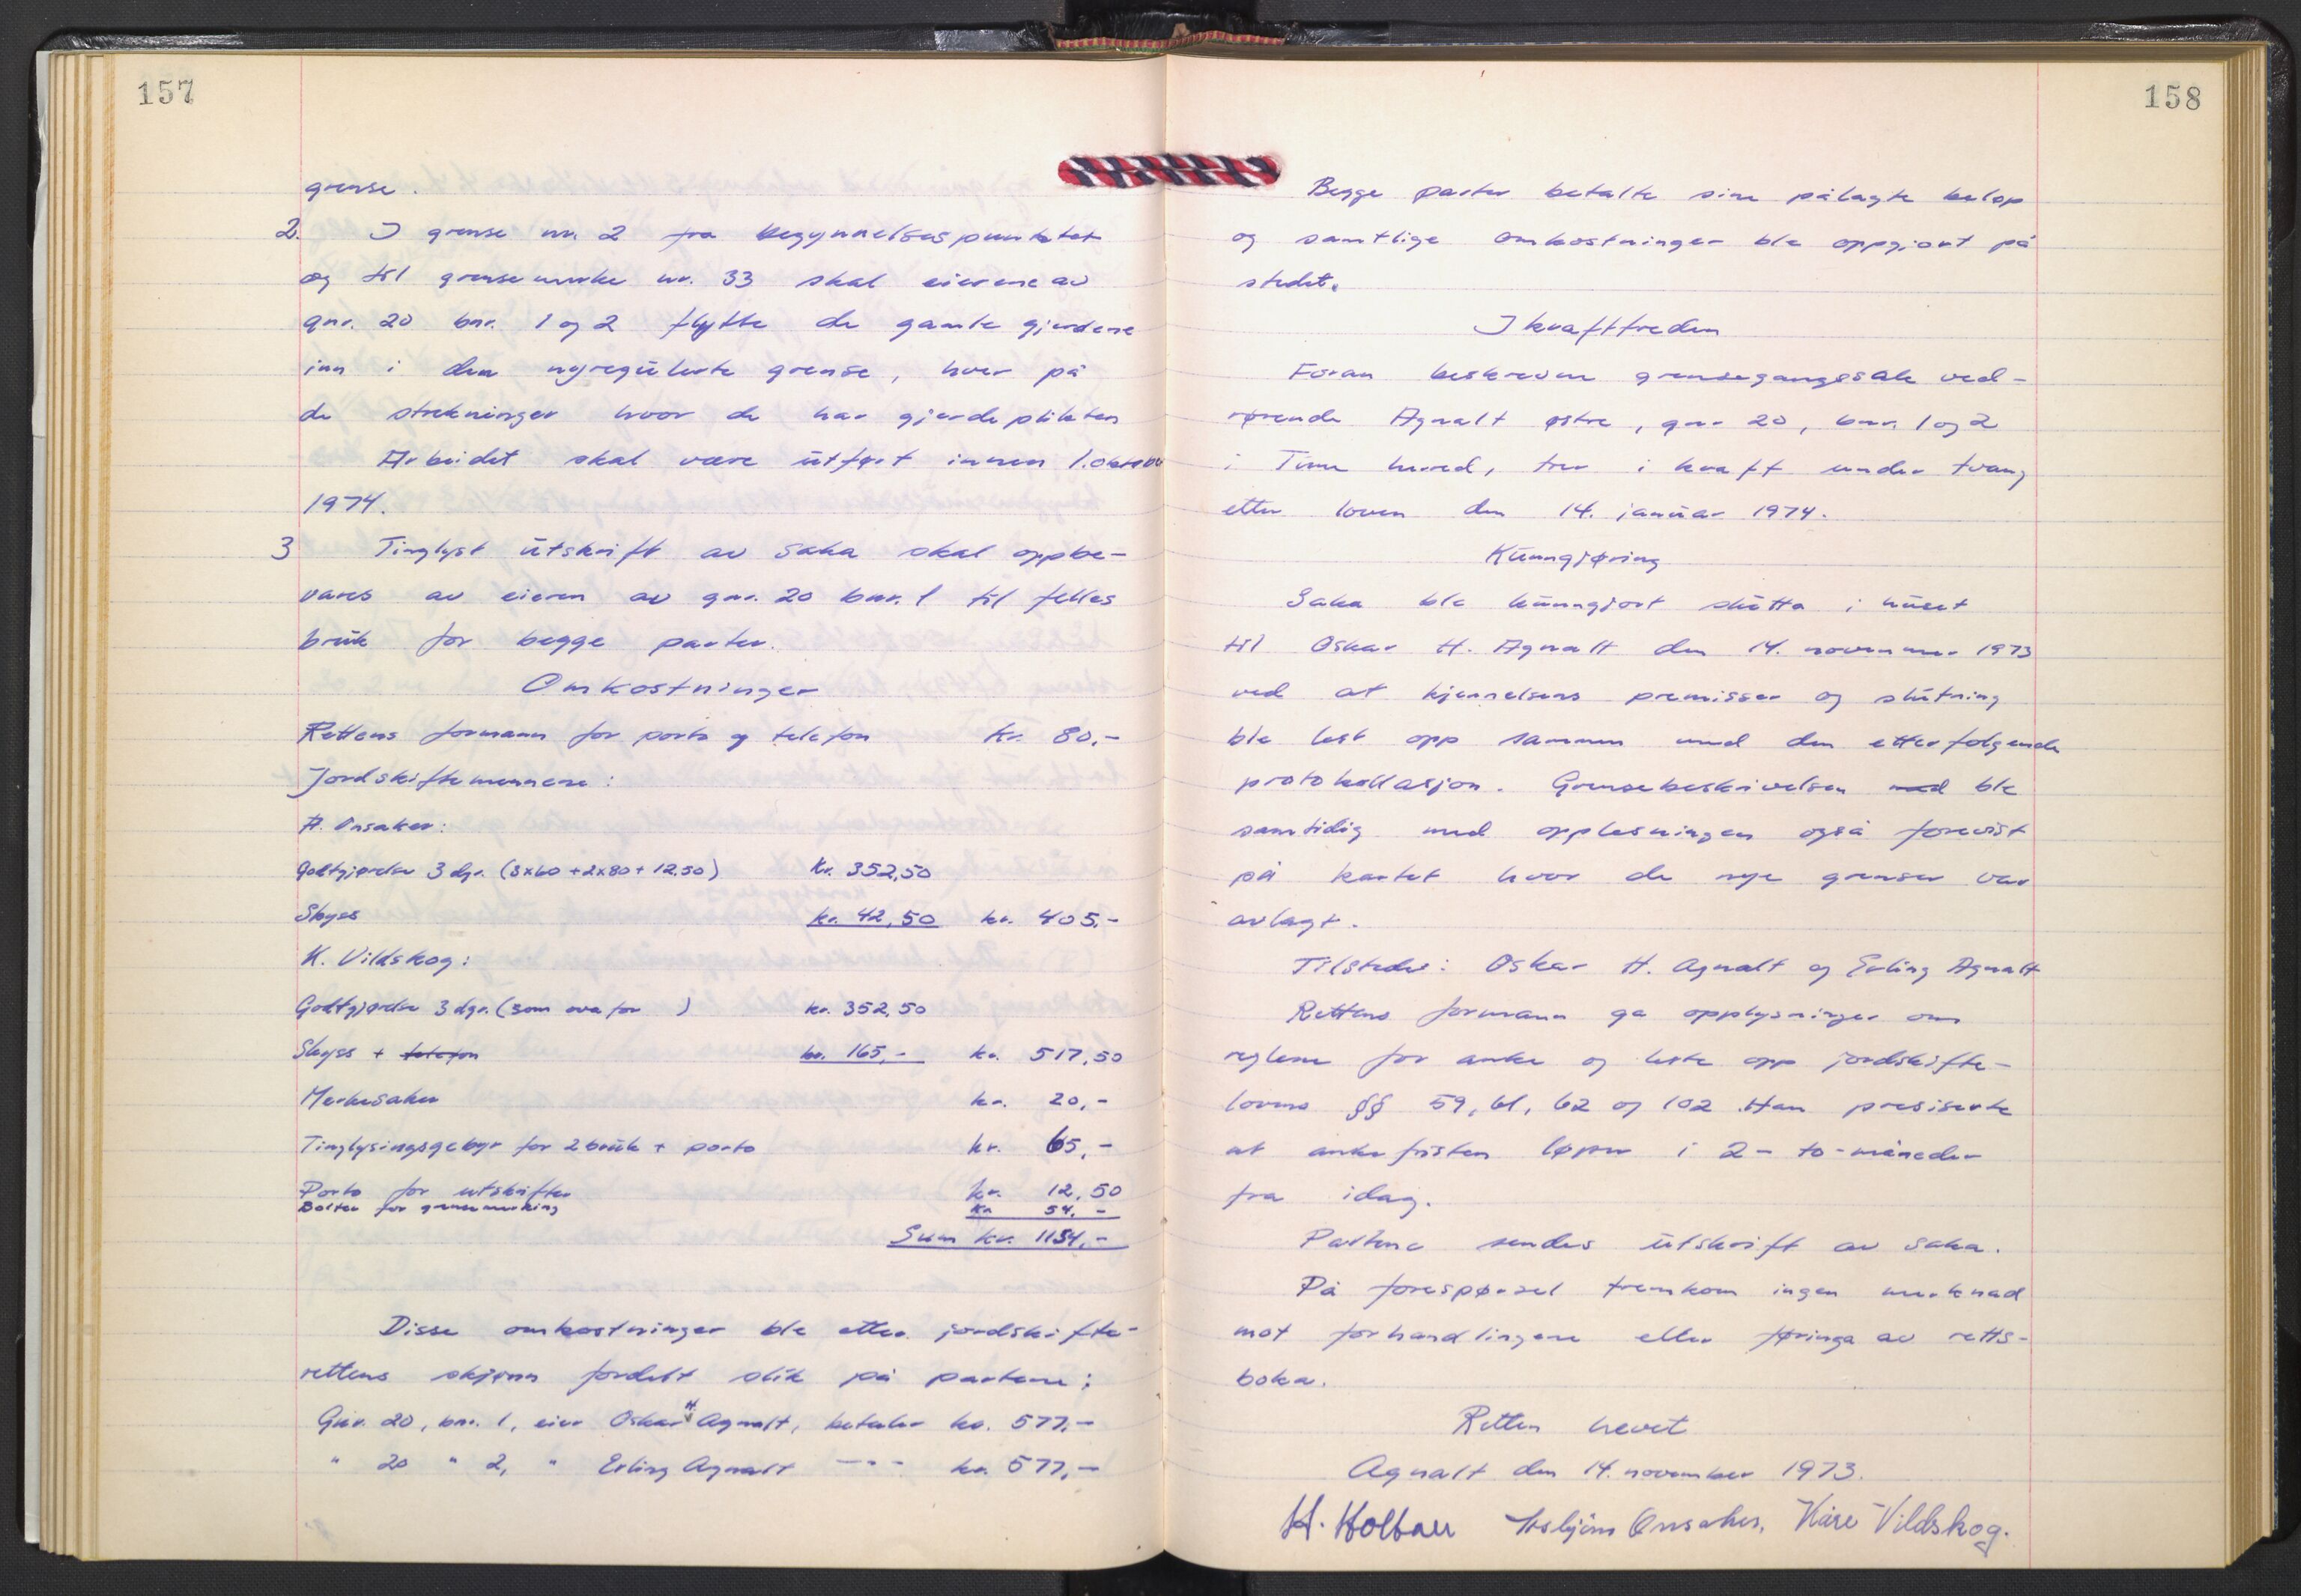 157
grense.
2. I grense nr. 2 fra begynnelsespunktet
og til grensemerke nr. 33 skal eierene av
gnr. 20 bnr. 1 og 2 flytte de gamle gjerdene
inn i den nyregulerte grense, hver på
de strekninger hvor de har gjerdeplikten
Arbeidet skal være utført innen 1. oktober
1974.
3 Tinglyst utskrift av saka skal oppbe-
vares av eieren av gnr. 20 bnr. 1 til felles
bruk for begge parter.
Omkostninger
Rettens formann for porto og telefon kr. 80,-
Jordskiftemennene:
A. Onsaker:
Godtgjørelse 3 dgr. (3x60 + 2x80 + 12,50) kr. 352,50
Skyss kr. 42,50 kr. 405,-
K. Vildskog:
Godtgjørelse 3 dgr. (som ovafor ) kr. 352,50
Skyss + telefon kr. 165,- kr. 517,50
Merkesaker kr. 20,-
Tinglysingsgebyr for 2 bruk + porto kr. 65,-
Porto for utskrifter kr. 12,50
Bolter for grensemerking kr 54,-
Sum kr. 1154,-
Disse omkostninger ble etter jordskifte-
rettens skjønn fordelt slik på partene:
Gnr. 20, bnr. 1, eier Oskar H. Agnalt, betaler kr. 577,-
" 20 " 2, " Erling Agnalt -"- kr. 577,-
158
Begge parter betalte sine pålagte beløp
og samtlige omkostninger ble oppgjort på
stedet.
Ikrafttreden
Foran beskrevne grensegangssak ved-
rørende Agnalt østre, gnr 20, bnr. 1 og 2
i herred, trer i kraft under tvang
etter loven den 14. januar 1974.
Kunngjøring
Saka ble kunngjort slutta i huset
til Oskar H. Agnalt den 14. november 1973
ved at kjennelsens premisser og slutning
ble lest opp sammen med den etterfølgende
protokollasjon. Grensebeskrivelsen med ble
samtidig med opplesningen også forevist
på kartet hvor de nye grenser var
avlagt.
Tilstede: Oskar H. Agnalt og Erling Agnalt
Rettens formann ga opplysninger om
reglene for anke og leste opp jordskifte-
lovens §§ 59, 61, 62 og 102. Han presiserte
at ankefristen løper i 2 - to - måneder
fra idag.
Partene sendes utskrift av saka.
På forespørsel fremkom ingen merknad
mot forhandlingene eller føringa av retts-
boka.
Retten hevet
Agnalt den 14. november 1973.
H. Holbær Asbjørn Onsaker, Kåre Vildskog.